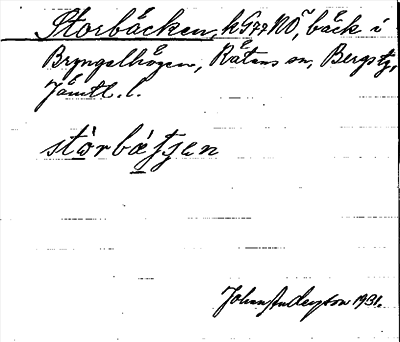 Storbäcken, h G 77 NO, bäck i
Bryngelhögen, Rätans sn, Bergs tg,
Jämtl. l.
stòrbǽtjen
Johan Anderson 1931.